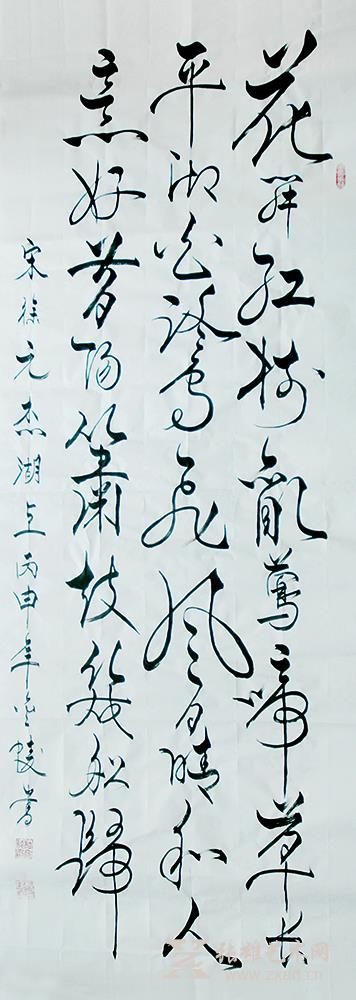 花开红树乱莺啼草长
平湖白鹭飞风日晴和人
意好夕阳箫鼓几船归
宋徐元杰湖上丙申年